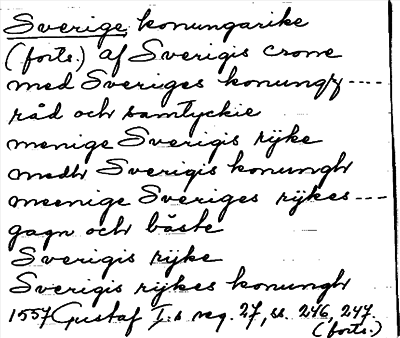 Sverige konungarike
(forts.) af Sverigis crone
med Sveriges konungz ----
råd och samtyckie
menige Sverigis rijke
medh Sverigis konungh
meenige Sveriges rijkes ---
gagn och bäste
Sverigis rijke
Sverigis rijkes konungh
1557 Gustaf I:s reg. 27, ss. 246, 247.
(forts.)